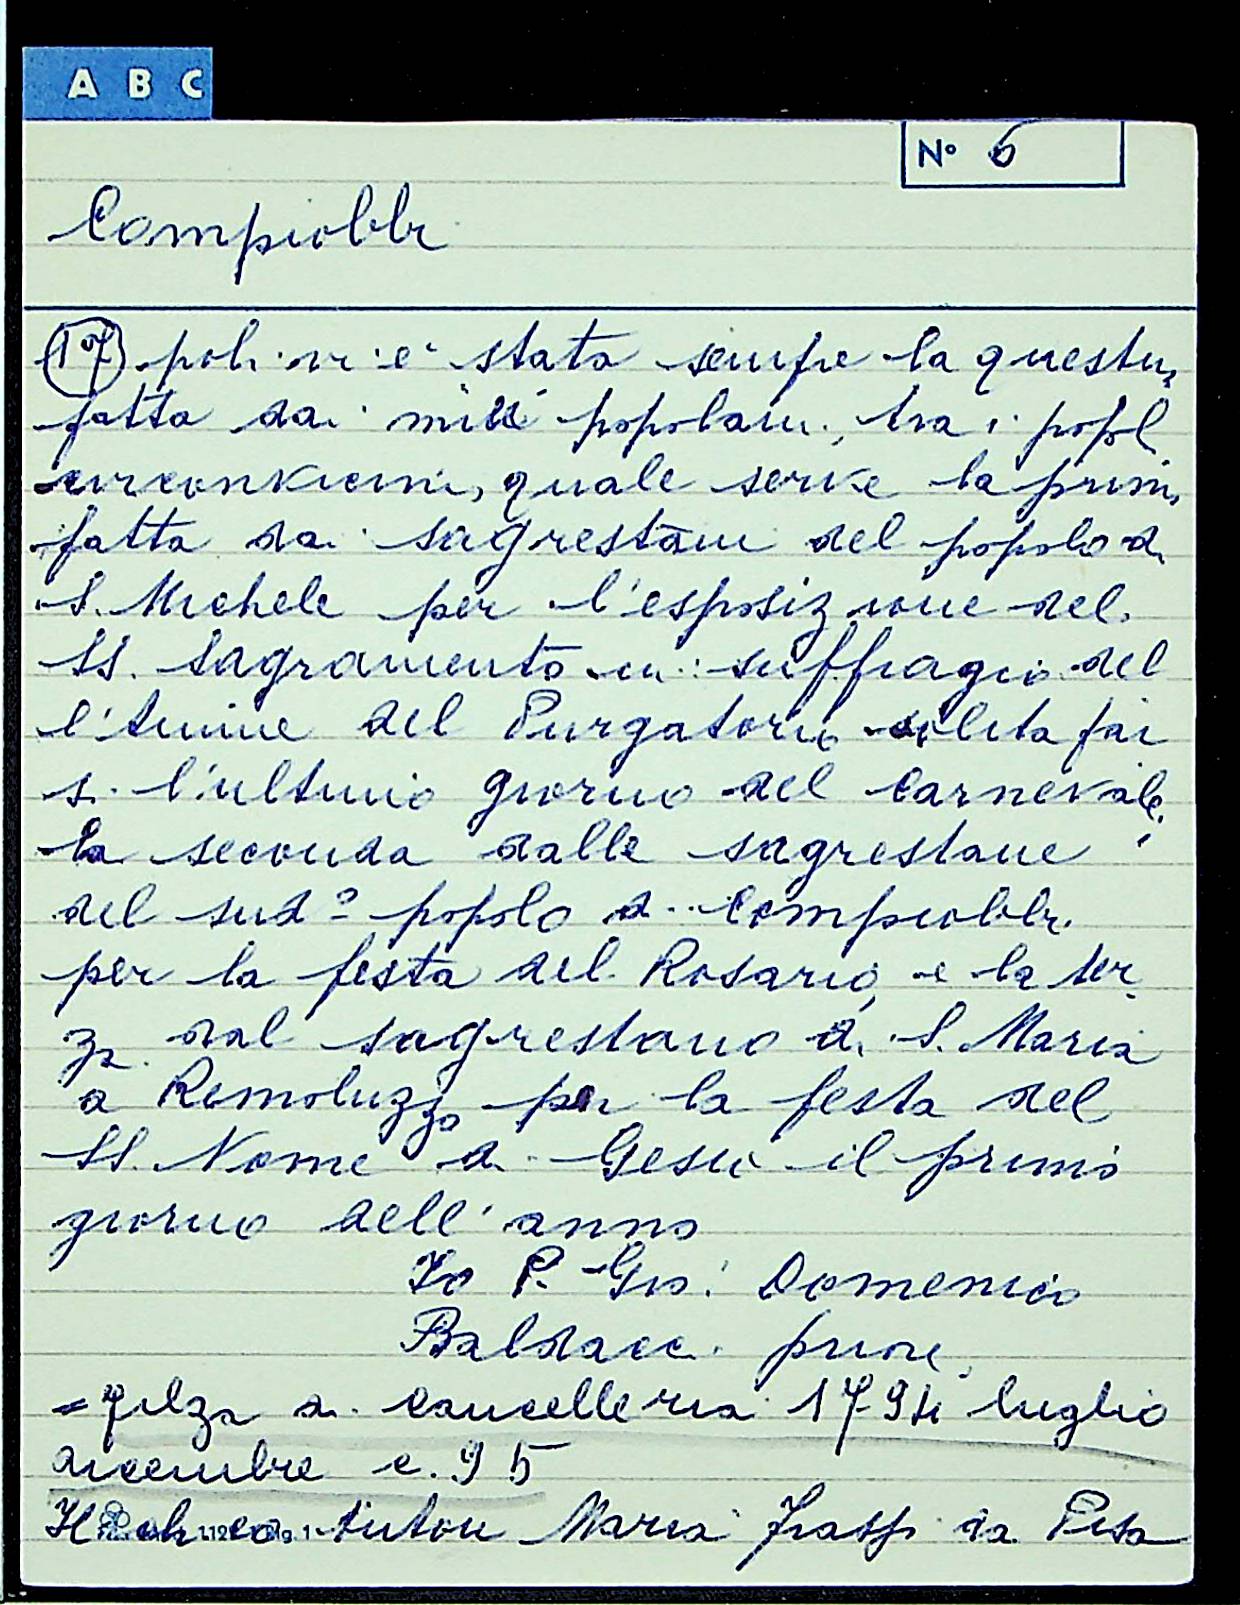 A B C
N° 6
Compiobbi
17 poli vi è stata sempre la questua
fatta dai miei popolani, tra i popoli
circonvicini, quale serve la prima
fatta dai sagrestani del popolo di
S. Michele per l'esposizione del
SS. Sagramento in suffragio del
l'Anime del Purgatorio solita far
si l'ultimo giorno del Carnevale,
la seconda dalle sagrestane
del sud° popolo di Compiobbi
per la festa del Rosario, e la ter
za dal sagrestano di S. Maria
a Remoluzzo per la festa del
SS. Nome di Gesù il primo
giorno dell'anno
Io P. Gio: Domenico
Baldacci priore
= filza di cancelleria 1794 luglio
dicembre c. 95
Anton Maria da Pisa